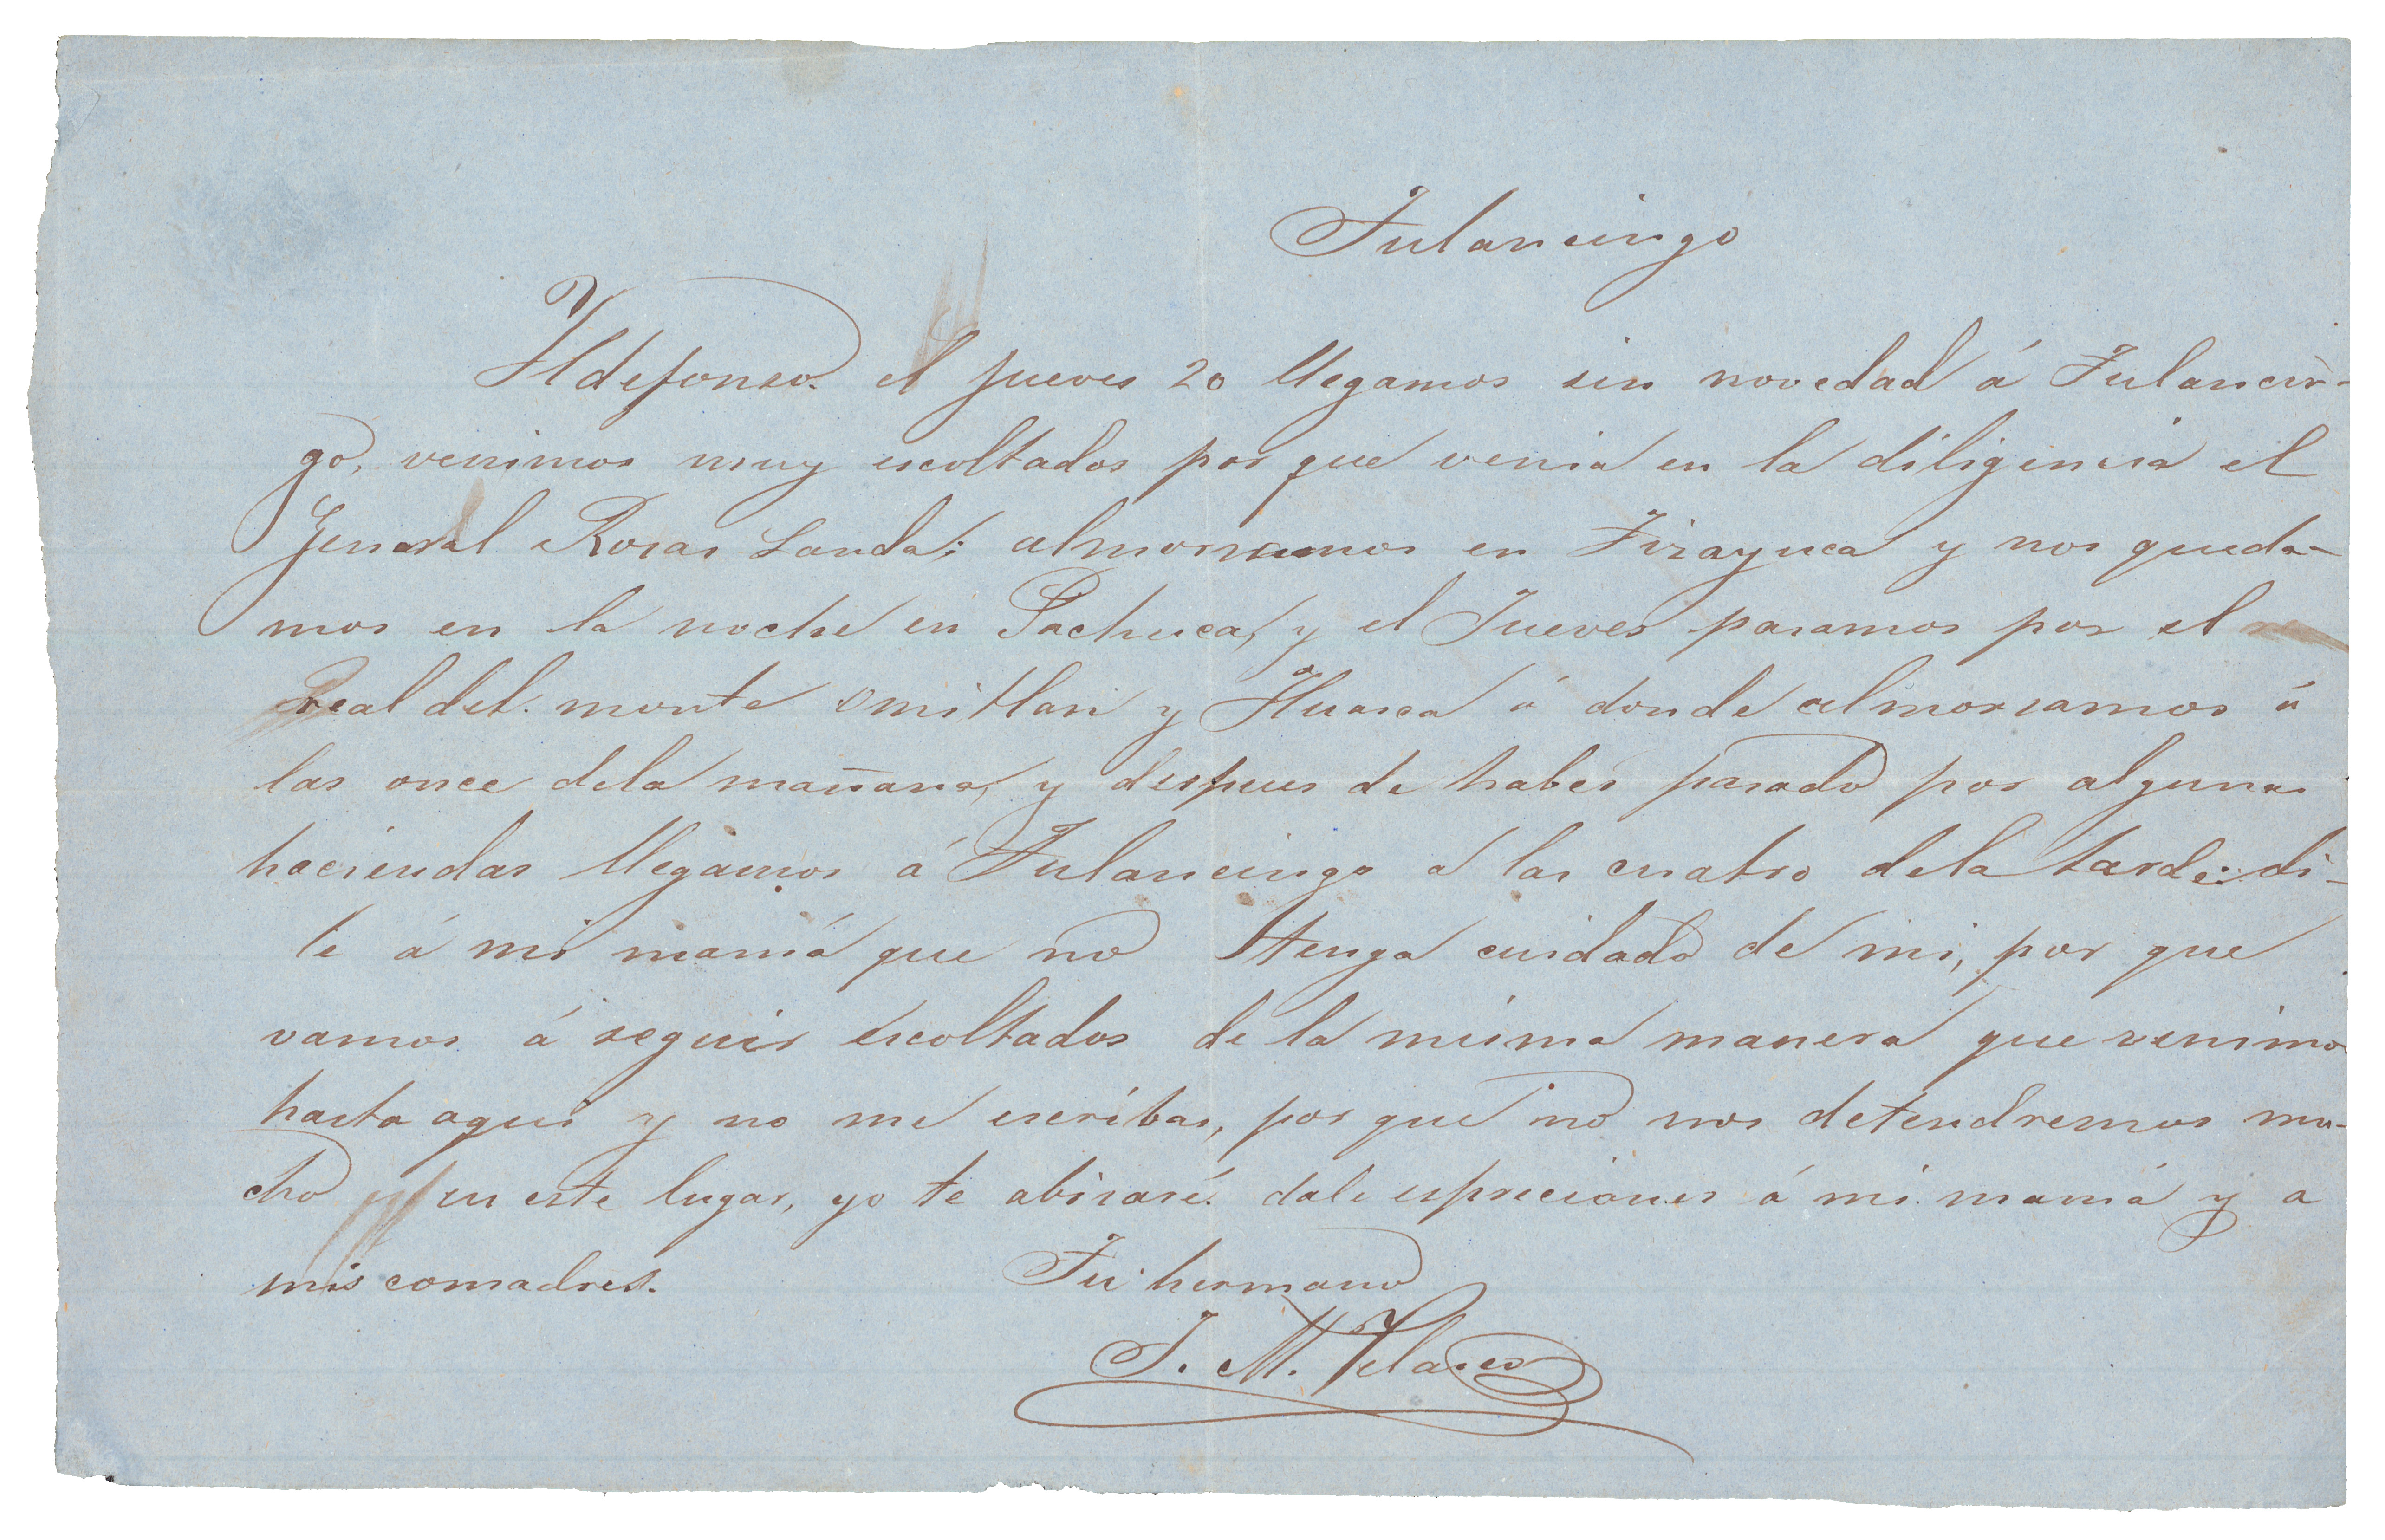 Tulancingo
Ildefonso. el jueves 20 llegamos sin novedad á Tulancin-
go, venimos muy escoltados por que venia en la diligencia el
Jeneral Rosas Landa; almorzamos en Tizayuca y nos queda-
mos en la noche en Pachuca, y el Jueves pasamos por el
Real del monte Omitlan y Huasca á donde almorsamos á
las once dela mañana, y despues de haber pasado por algunas
haciendas llegamos á Tulancingo a las cuatro dela tarde: di-
le á mi mamá que no tenga cuidado de mi, por que
vamos á seguir escoltados de la misma manera que venimos
hasta aqui y no me escribas, por que no nos detendremos mu-
cho en este lugar, yo te abisaré. dale espreciones á mi mamá y a
mis comadres. Tu hermano
J. M. Velasco